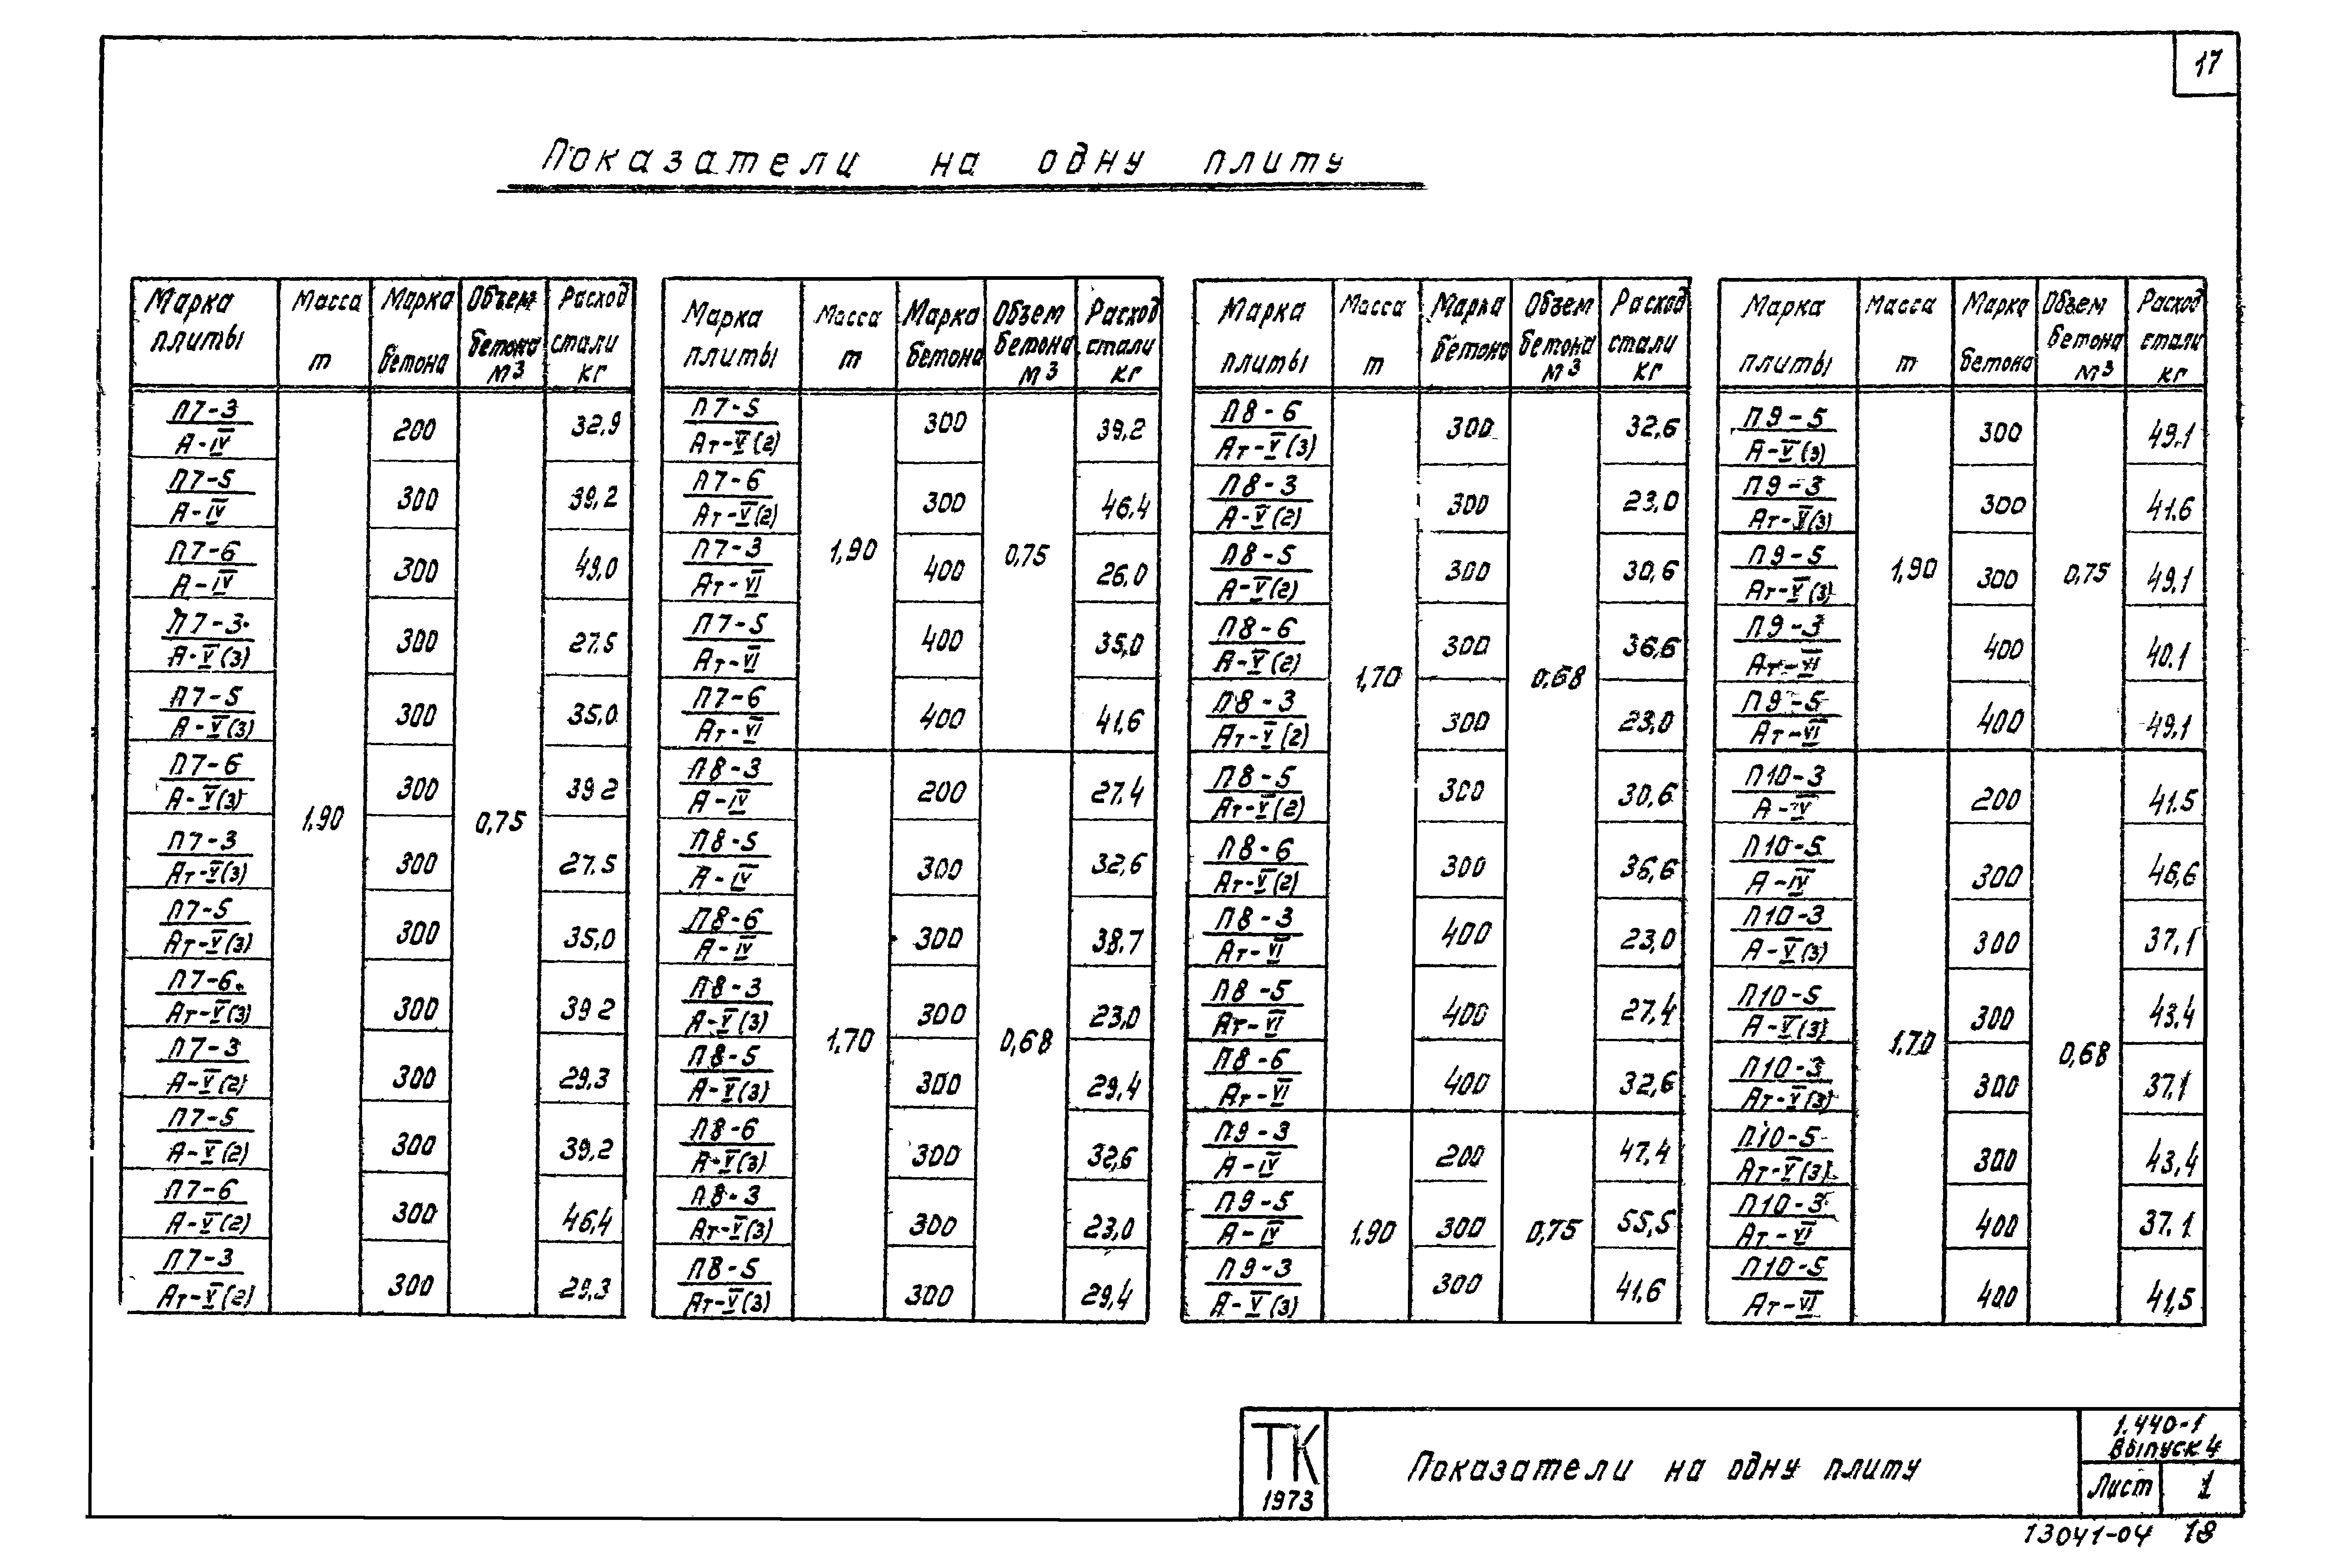 17
Показатели на одну плиту
Марка плиты | Масса т | Марка бетона | Объем бетона м3 | Расход стали кг
П7-3 / А-IV | 1,90 | 200 | 0,75 | 32,9
П7-5 / А-IV | 300 | 39,2
П7-6 / А-IV | 300 | 49,0
П7-3 / А-V(3) | 300 | 27.5
П7-5 / А-V(3) | 300 | 35,0
П7-6 / А-V(3) | 300 | 39 2
П7-3 / Ат-V(3) | 300 | 27.5
П7-5 / Ат-V(3) | 300 | 35,0
П7-6 / Ат-V(3) | 300 | 39 2
П7-3 / А-V(2) | 300 | 29.3
П7-5 / А-V(2) | 300 | 39,2
П7-6 / А-V(2) | 300 | 46,4
П7-3 / Ат-V(2) | 300 | 29,3
Марка плиты | Масса т | Марка бетона | Объем бетона м3 | Расход стали кг
П7-5 / Ат-V(2) | 1,90 | 300 | 0,75 | 39,2
П7-6 / Ат-V(2) | 300 | 46.4
П7-3 / Ат-VI | 400 | 26.0
П7-5 / Ат-VI | 400 | 35,0
П7-6 / Ат-VI | 400 | 41.6
П8-3 / А-IV | 1.70 | 200 | 0,68 | 27.4
П8-5 / А-IV | 300 | 32,6
П8-6 / А-IV | 300 | 38.7
П8-3 / А-V(3) | 300 | 23,0
П8-5 / А-V(3) | 300 | 29,4
П8-6 / А-V(3) | 300 | 32,6
П8-3 / Ат-V(3) | 300 | 23,0
П8-5 / Ат-V(3) | 300 | 29,4
Марка плиты | Масса т | Марка бетона | Объем бетона м3 | Расход стали кг
П8-6 / Ат-V(3) | 1,70 | 300 | 0,68 | 32,6
П8-3 / А-V(2) | 300 | 23,0
П8-5 / А-V(2) | 300 | 30,6
П8-6 / А-V(2) | 300 | 36,6
П8-3 / Ат-V(2) | 300 | 23,0
П8-5 / Ат-V(2) | 300 | 30,6
П8-6 / Ат-V(2) | 300 | 36,6
П8-3 / Ат-VI | 400 | 23,0
П8-5 / Ат-VI | 400 | 27,4
П8-6 / Ат-VI | 400 | 32,6
П9-3 / А-IV | 1.90 | 200 | 0,75 | 47.4
П9-5 / А-IV | 300 | 55,5
П9-3 / А-V(3) | 300 | 41,6
Марка плиты | Масса т | Марка бетона | Объем бетона м3 | Расход стали кг
П9-5 / А-V(3) | 1,90 | 300 | 0,75 | 49.1
П9-3 / Ат-V(3) | 300 | 41.6
П9-5 / Ат-V(3) | 300 | 49.1
П9-3 / Ат-VI | 400 | 40.1
П9-5 / Ат-VI | 400 | 49.1
П10-3 / А-IV | 1.70 | 200 | 0,68 | 41.5
П10-5 / А-IV | 300 | 46,6
П10-3 / А-V(3) | 300 | 37,1
П10-5 / А-V(3) | 300 | 43.4
П10-3 / Ат-V(3) | 300 | 37.1
П10-5 / Ат-V(3) | 300 | 43,4
П10-3 / Ат-VI | 400 | 37.1
П10-5 / Ат-VI | 400 | 41,5
ТК
1973
Показатели на одну плиту
1.440-1
Выпуск 4
Лист 1
13041-04 18